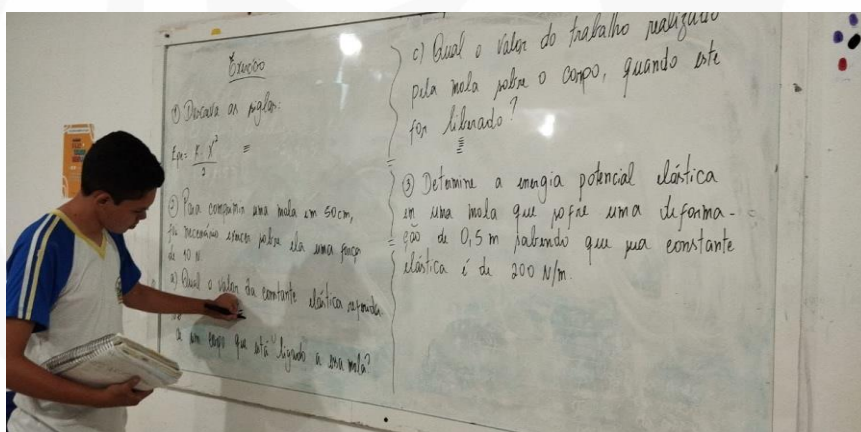 Exercício
① Descreva as siglas:
Epe = K . X²
2
② Para comprimir uma mola em 50cm,
foi necessário exercer sobre ela uma força
de 10 N
a) Qual o valor da constante elástica
a um corpo que está ligado a essa mola?
c) Qual o valor do trabalho realizado
pela mola sobre o corpo, quando este
for liberado?
③ Determine a energia potencial elástica
em uma mola que sofre uma deforma-
ção de 0,5 m sabendo que sua constante
elástica é de 200 N/m.